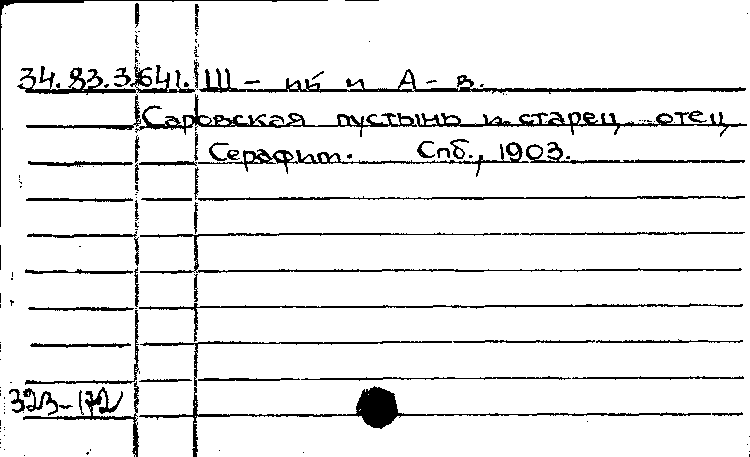 34.83.3.641. Ш - ий и А - в.
Саровская пустынь и старец отец
Серафим. Спб., 1903.
323-172